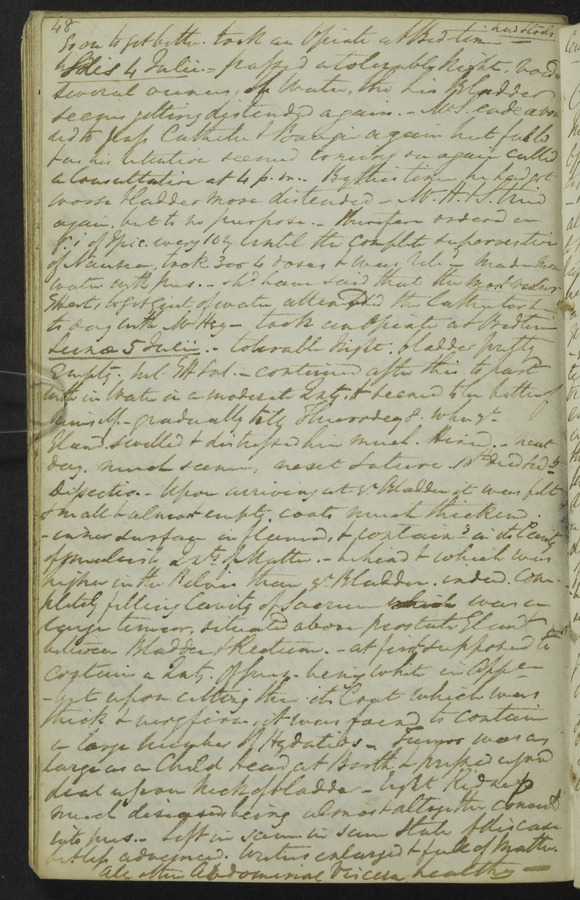 48
had Stools
So on to get better. took an Opiate at Bed time
Solis 4 Julii = passed a tolerably Night, voids
several ounces of Water, tho his Bladder
seems getting distended again. - Mr S. endeavor
ed to pass Catheter & Bougie again but fail'd
& as his retention seemed coming on again called
a Consultation at 4 p.m. By this time he had got
worse bladder more distended - Mr H. & S. tried
again, but to no purpose. - Therefore ordered
gr i of Ipic. every 10 until the complete supervention
of Nausea, took 3 or 4 doses & was made
water with pus. - have said that the most
to get of water attended the Catheter
to day with Mr Hey - took an Opiate at Bedtime
Lunæ 5 Julii. - tolerable Night. bladder pretty
Empty. - continued after this to part
with in Water in a moderate Qnty. & seemed to be better of
himself - gradually till Thursday 8. when
Gland swelled & distressed him much. - next
day much same, next Saturn. 10th died
Disectio. - Upon arriving at ye Bladder it was felt
small & almost empty. coats much thicken'd
- inner surface inflamed, & contain'd in its Cavity
of Matter. - behind & which was
higher in the Pelvis than ye Bladder, indeed com-
pletely filling Cavity of Sacrum was a
large tumor, situated above prostate Gland
between Bladder & Rectum. - at first supposed to
contain a Qnty. of pus - being white in appe-
- but upon cutting thro its Coat which was
thick & very firm, it was found to contain
a large number of Hydatids - Tumor was as
large as a Child Head at Birth & pressed upon
upon Neck of bladder - right Kidney
much diseased being almost altogether convert
into pus. - Left in same in same State of disease
but less advanced. Ureters enlarged & full of Matter.
All other Abdominal Viscera healthy -